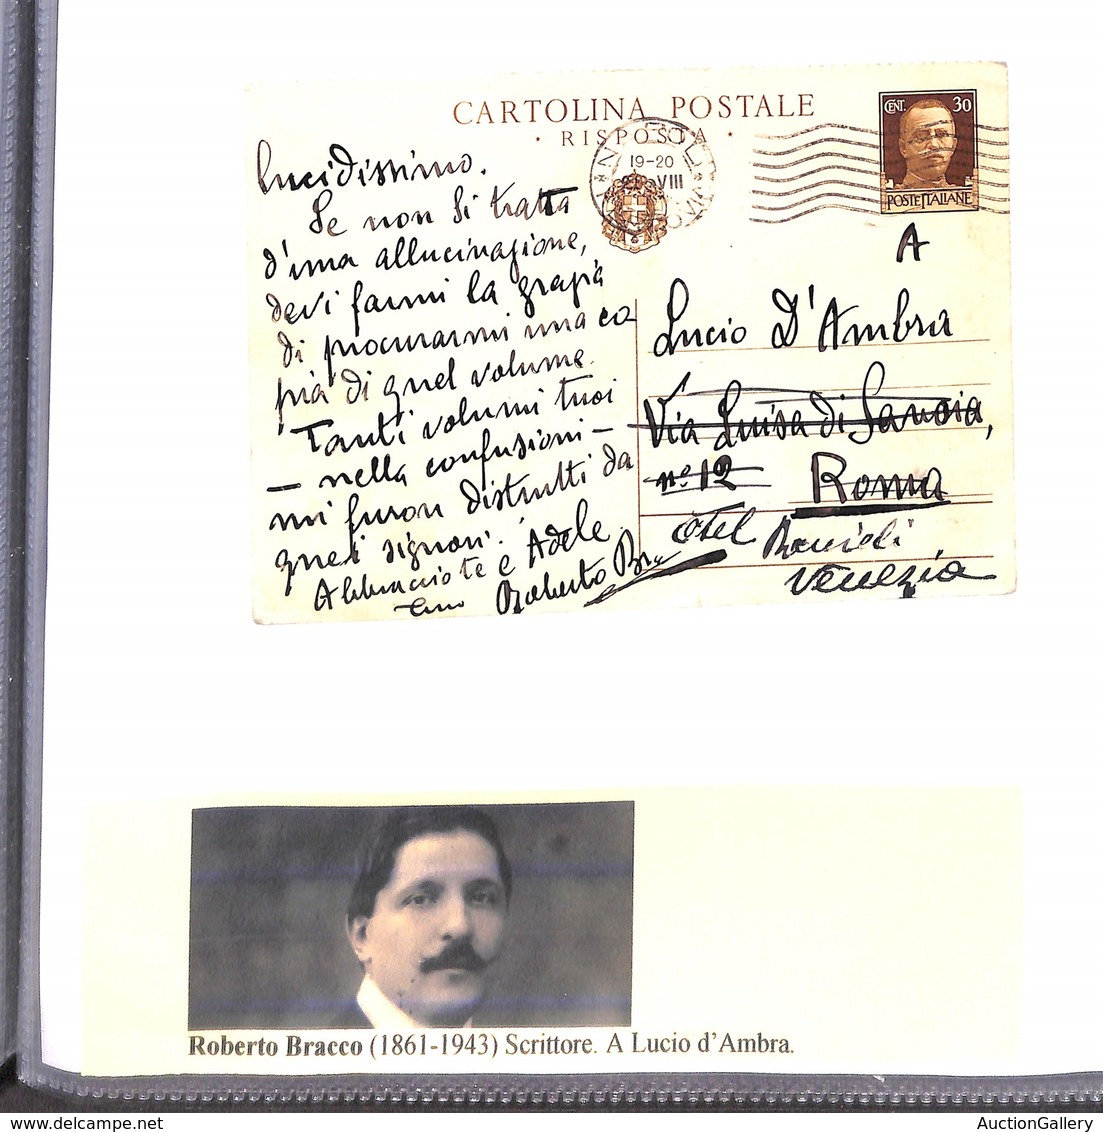 CARTOLINA POSTALE
· RISPOSTA ·
CENT. 30
POSTE ITALIANE
19-20
VIII
Lucidissimo.
Se non si tratta
d'una allucinazione,
devi farmi la grazia
di procurarmi una co
pia di quel volume.
Tanti volumi tuoi
— nella confusioni —
mi furon distrutti da
quei signori.
Abbraccio te e Adele
tuo Roberto Bracco
A
Lucio D'Ambra
Via Luisa di Savoia,
n° 12
Roma
Otel Danieli
Venezia
Roberto Bracco (1861-1943) Scrittore. A Lucio d'Ambra.
www.delcampe.net
AuctionGallery